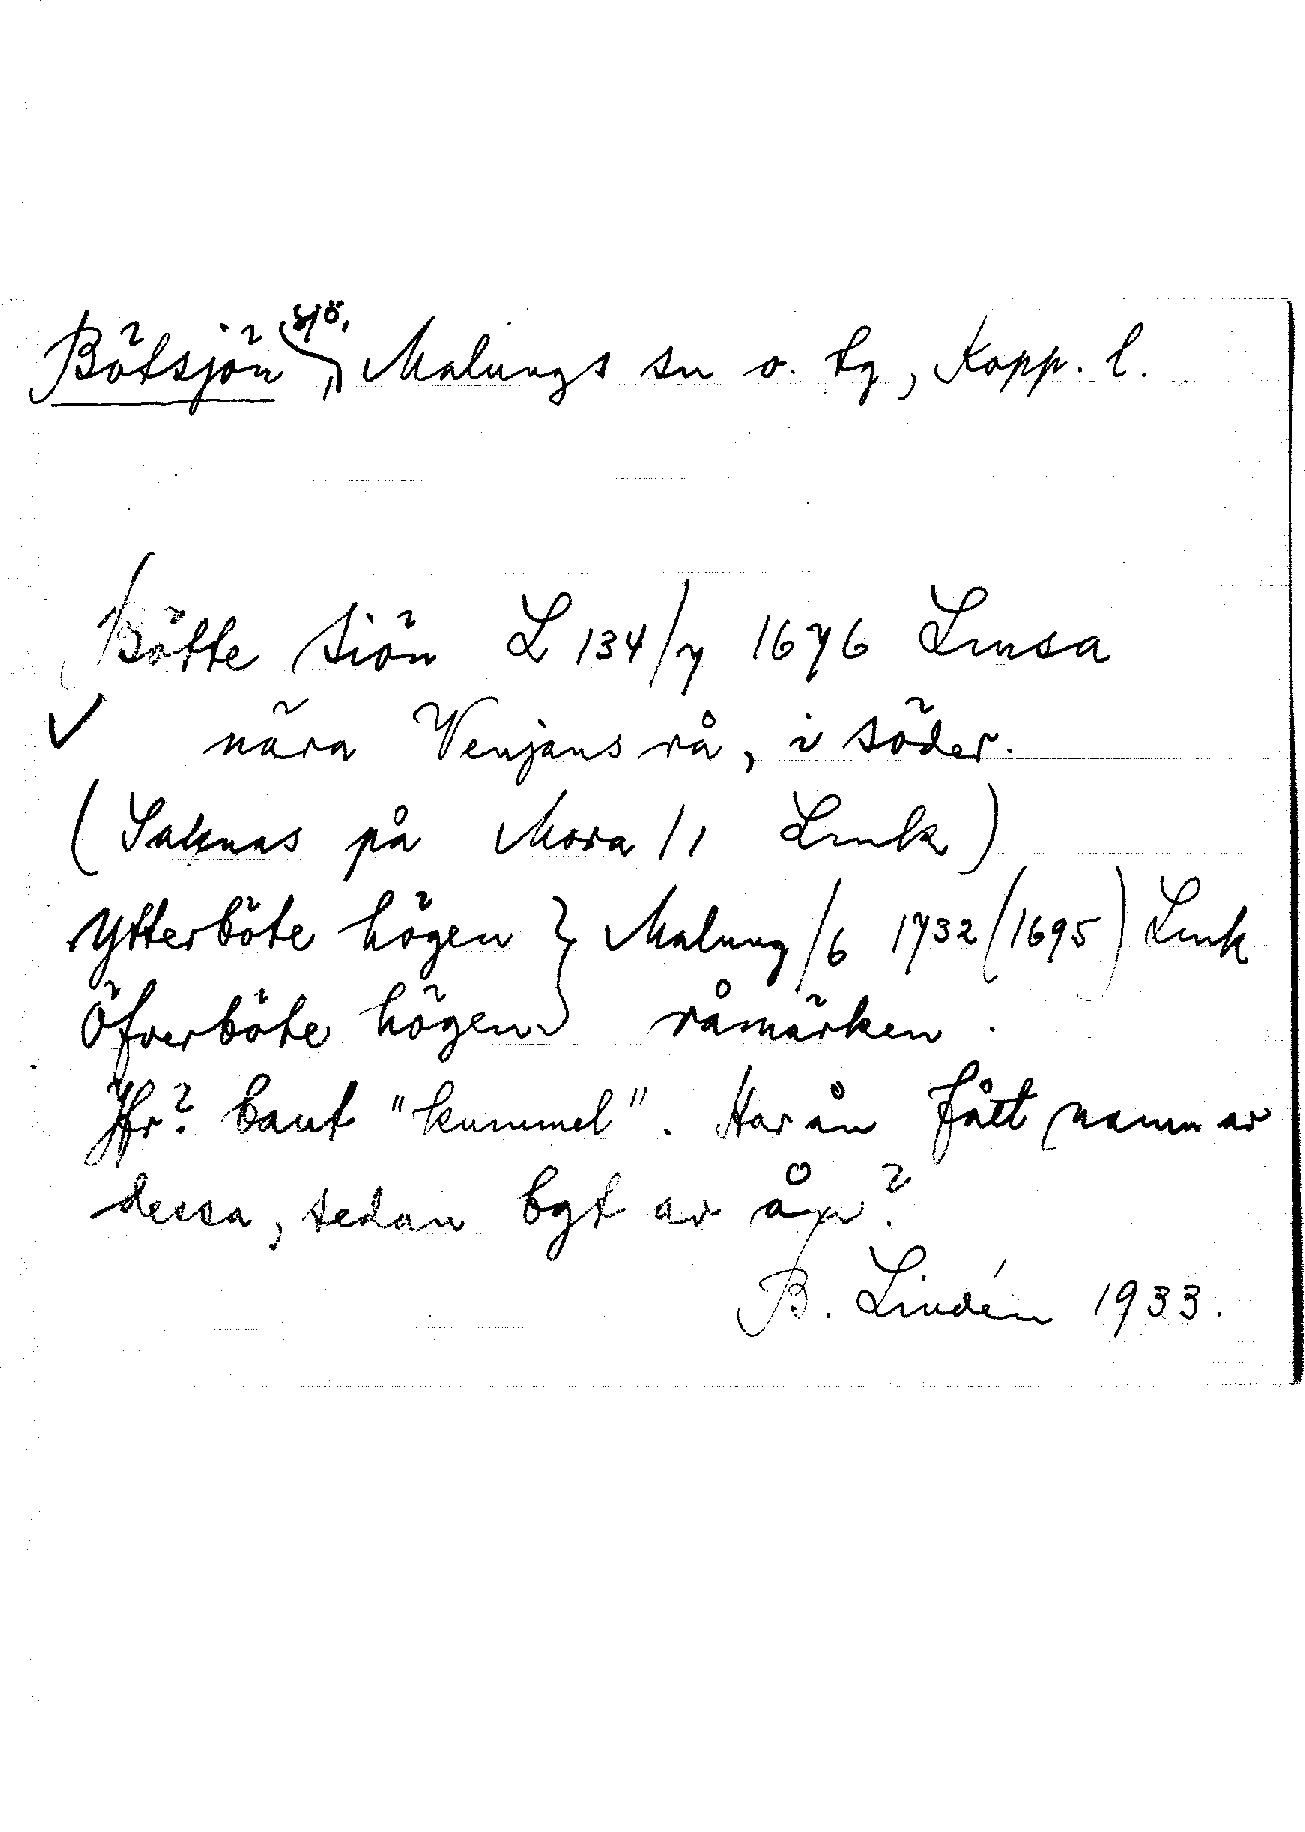 Bötsjön, sjö, Malungs sn o. tg, Kopp. l.
Bötte siön L 134/7 1676 Lmsa
nära Venjans rå, i söder.
(Saknas på Mora 11 Lmk)
Ytterböte högen } Malung/6 1732 (1695) Lmk
Öfverböte högen } råmärken.
Jfr? baut "kummel". Har ån fått namn av
dessa, sedan bgt av ån?
B. Lindén 1933.